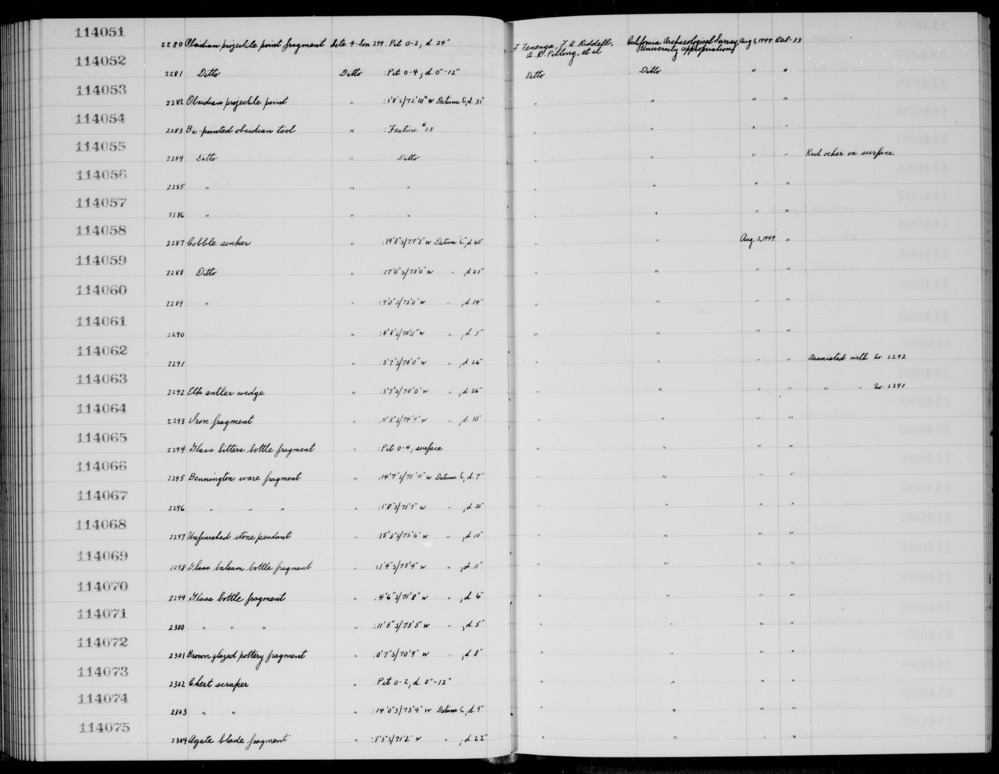 114051 2280 Obsidian projectile point fragment Site 4-Son 299: Pit 0-2, d. 24" F. Fenenga, F. A. Riddell, A. R. Pilling, et al California Archaeological Survey University appropriations Aug 1, 1949 Cat. 33
114052 2281 Ditto Ditto : Pit 0-4; d 0"-12" Ditto Ditto " "
114053 2282 Obsidian projectile point " Datum C, d. 31" " " " "
114054 2283 Bi-pointed obsidian tool " : Feature #28 " " " "
114055 2284 Ditto " Ditto " " " " Red ocher on surface
114056 2285 " " " " " " "
114057 2286 " " " " " " "
114058 2287 Cobble sinker " Datum C, d 60" " " Aug. 2, 1949 "
114059 2288 Ditto " : 17'0"S/73'0"W " , d. 21" " " " "
114060 2289 " " : 9'0"S/75'0"W " , d. 14" " " " "
114061 2290 " , d. 5" " " " "
114062 2291 : 5'7"S/70'0"W " , d. 26" " " " " Associated with 2-2292
114063 2292 Elk antler wedge " : 5'7"S/70'0"W " , d. 26" " " " " " " 2-2291
114064 2293 Iron fragment " , d. 10" " " " "
114065 2294 Glass bitters bottle fragment " : Pit 0-4, surface " " " "
114066 2295 Bennington ware fragment " : 14'7"S/71'11"W Datum C, d. 7" " " " "
114067 2296 " " " " : 1'8"S/75'7"W " , d. 20" " " " "
114068 2297 Unfinished stone pendant " : 15'5"S/72'6"W " , d. 10" " " " "
114069 2298 Glass balsam bottle fragment " : 1'4"S/75'4"W " , d. 11" " " " "
114070 2299 Glass bottle fragment " : 4'6"S/71'8"W " , d. 6" " " " "
114071 2300 " " " " : 11'5"S/75'5"W " , d. 5" " " " "
114072 2301 Brown glazed pottery fragment " : 0'7"S/70'9"W " , d. 8" " " " "
114073 2302 Chert scraper " : Pit 0-2, d. 0"-12" " " " "
114074 2303 " " " : 14'0"S/73'4"W Datum C, d. 9" " " " "
114075 2304 Agate blade fragment " : 8'5"S/71'2"W " , d. 22" " " " "